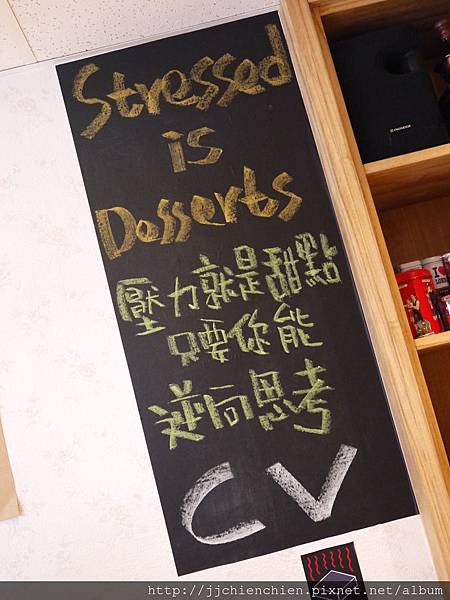 Stressed
is
Desserts
壓力就是甜點
只要你能
逆向思考
CV
PIONEER
http://jjchienchien.pixnet.net/album